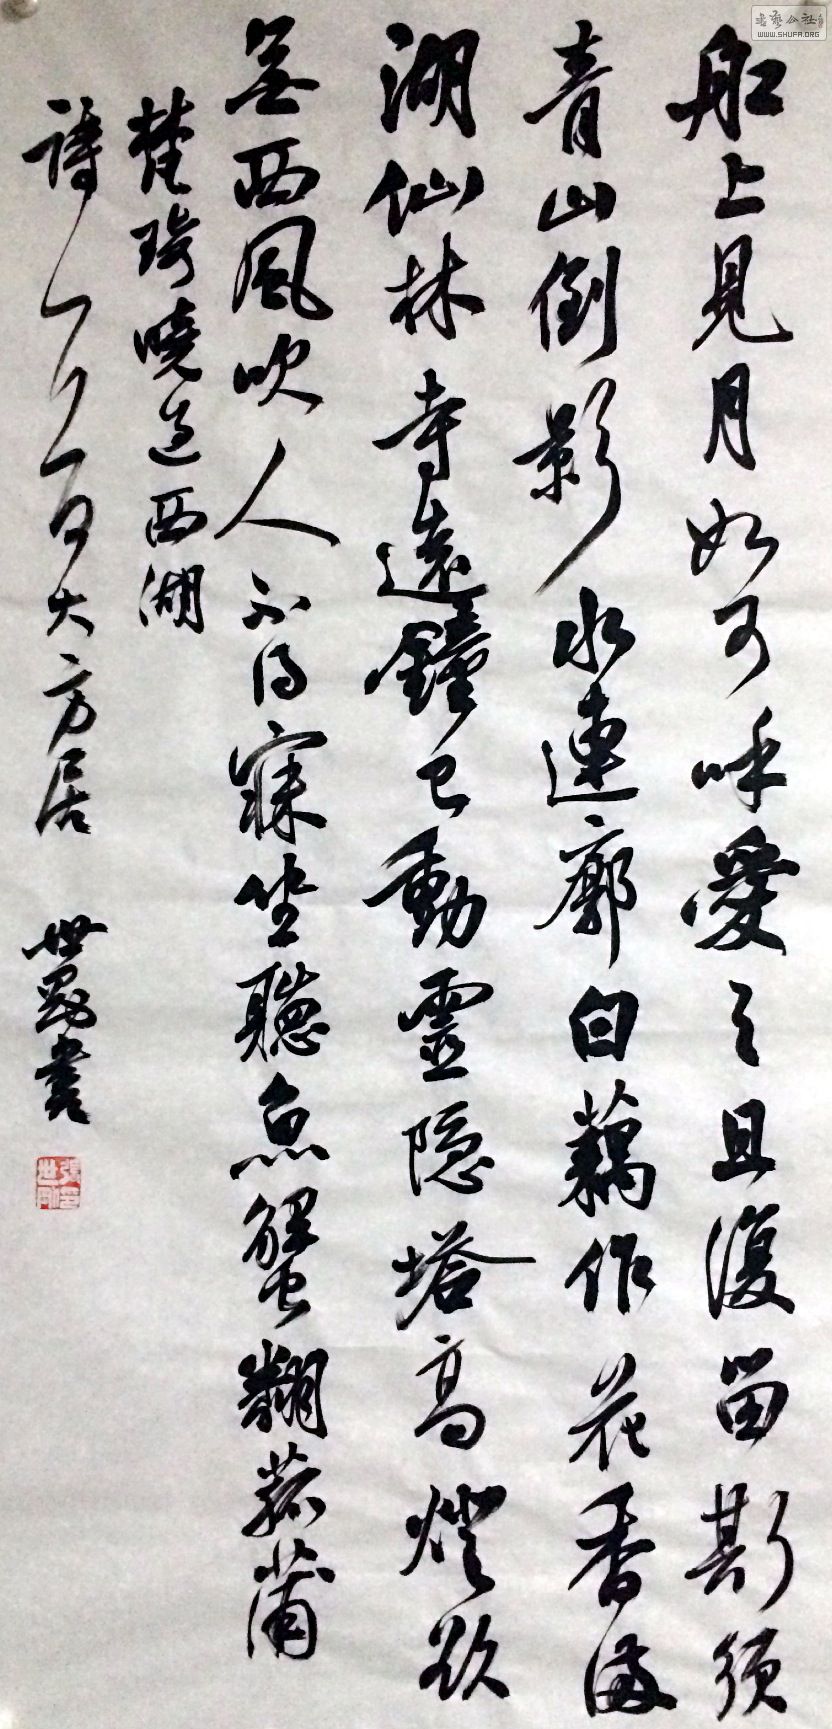 船上見月如可呼愛之且復留斯須
青山倒影水連廓白藕作花香滿
湖仙林寺遠鐘已動靈隱塔高燈欲
無西風吹人不得寐坐聽魚蟹翻菰蒲
楚琦曉過西湖
詩 大方居 世剛書
張世剛印
書藝公社
WWW.SHUFA.ORG